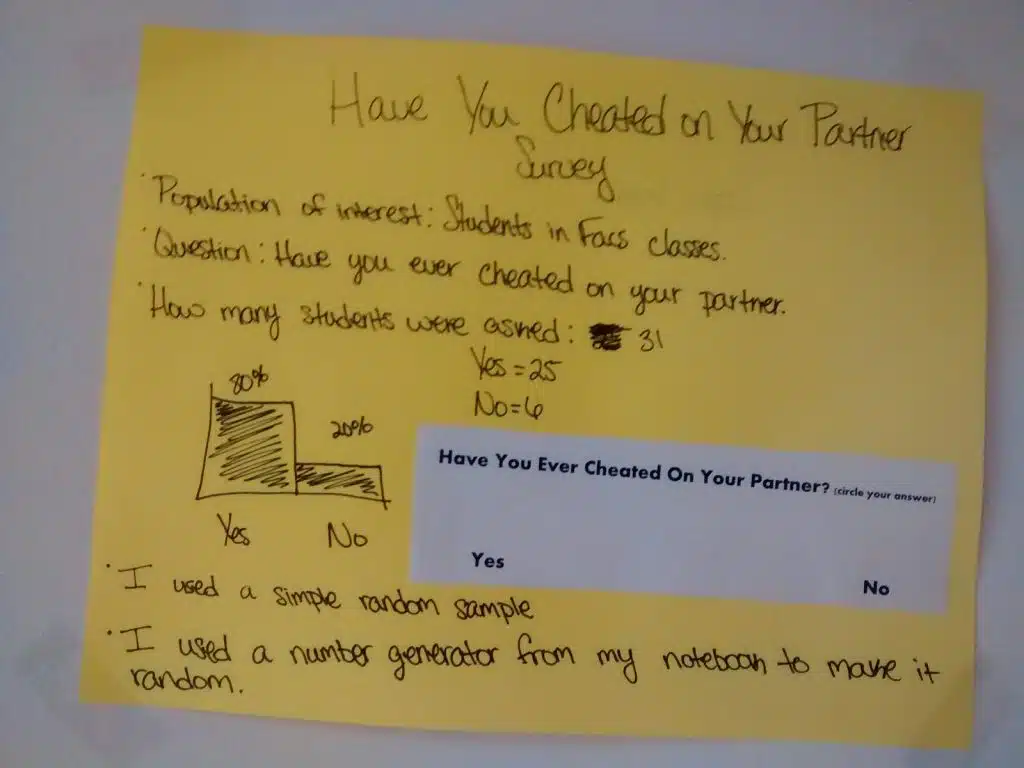 Have You Cheated on Your Partner
Survey
· Population of interest: Students in Facs classes.
· Question: Have you ever cheated on your partner.
· How many students were asked: 31
Yes = 25
No = 6
80%
20%
Yes No
Have You Ever Cheated On Your Partner? (circle your answer)
Yes
No
· I used a simple random sample
· I used a number generator from my notebook to make it
random.